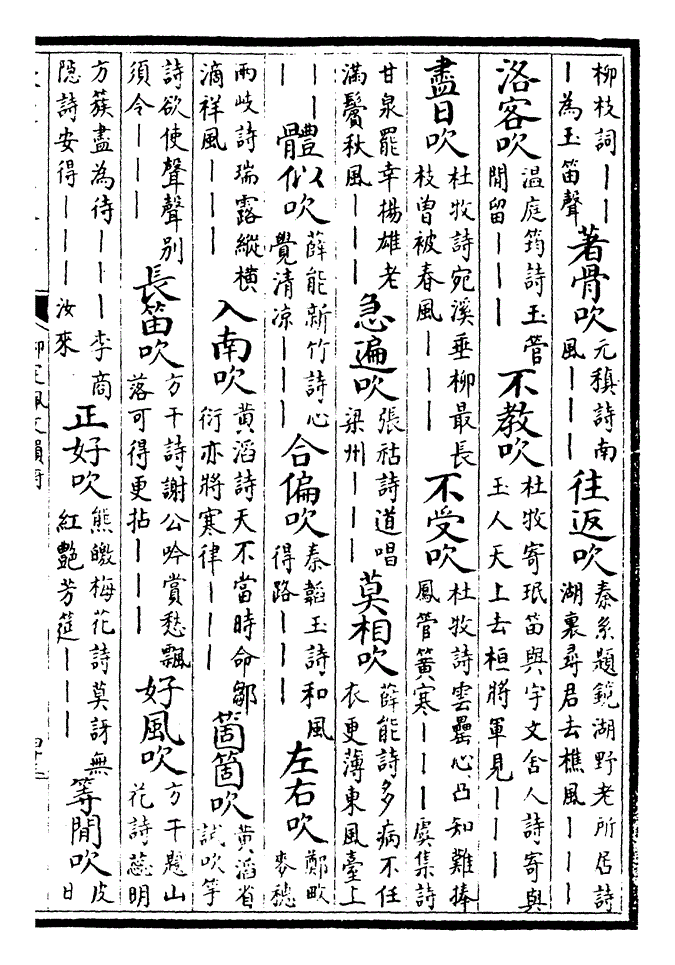 柳枝詞｜｜
｜為玉笛聲
著骨吹
元稹詩南
風｜｜｜
往返吹
秦系題鏡湖野老所居詩
湖裏尋君去樵風｜｜｜
洛客吹
温庭筠詩玉管
閒留｜｜｜
不教吹
杜牧寄珉笛與宇文舍人詩寄與
玉人天上去桓將軍見｜｜｜
盡日吹
杜牧詩宛溪垂柳最長
枝曾被春風｜｜｜
不受吹
杜牧詩雲罍心凸知難捧
鳳管簧寒｜｜｜虞集詩
甘泉罷幸楊雄老
滿鬢秋風｜｜｜
急遍吹
張祜詩道唱
梁州｜｜｜
莫相吹
薛能詩多病不任
衣更薄東風臺上
｜｜
｜
體似吹
薛能新竹詩心
覺清凉｜｜｜
合偏吹
秦韜玉詩和風
得路｜｜｜
左右吹
鄭畋
麥穗
兩岐詩瑞露縱横
滴祥風｜｜｜
入南吹
黄滔詩天不當時命鄒
衍亦將寒律｜｜｜
箇箇吹
黄滔省
試吹竽
詩欲使聲聲別
須令｜｜｜
長笛吹
方干詩謝公吟賞愁飄
落可得更拈｜｜｜
好風吹
方干題山
花詩蕊明
方蔟盡為待｜｜｜李商
隐詩安得｜｜｜汝來
正好吹
熊皦梅花詩莫訝無
紅艷芳筵｜｜｜
等閒吹
皮
日